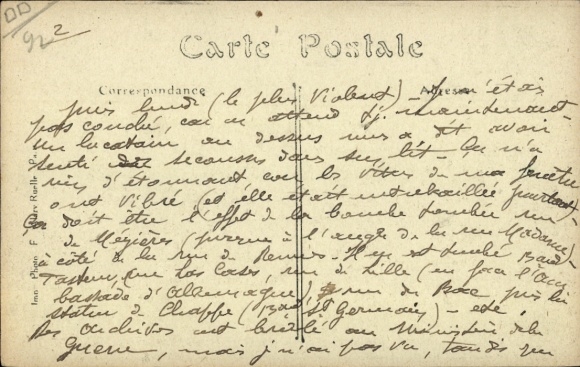 DD
92 2
Carte Postale
Correspondance
Adresse
puis lundi (le plus violent) – Je n'étais
pas couché, car on attend dj. maintenant –
Un locataire au dessus m'a dit avoir
senti des secousses dans son lit – Ça n'a
rien d'étonnant car les vitres de ma fenêtre
ont vibré (et elle était entrebaillée pourtant)
Ça doit être l'effet de la bombe tombée rue
de Mézières (jusque à l'angle de la rue Madame)
à côté de la rue de Rennes. Il en est tombé Boul.
rue Las Cases, rue de Lille (en face l'Am-
bassade d'Allemagne) rue du Bac près la
statue de Chappe (Bard St Germain) – etc.
Des archives ont brûlé au Ministère de la
Guerre, mais je n'ai pas vu, tandis que
Imp. Photo F. Ruelle P.